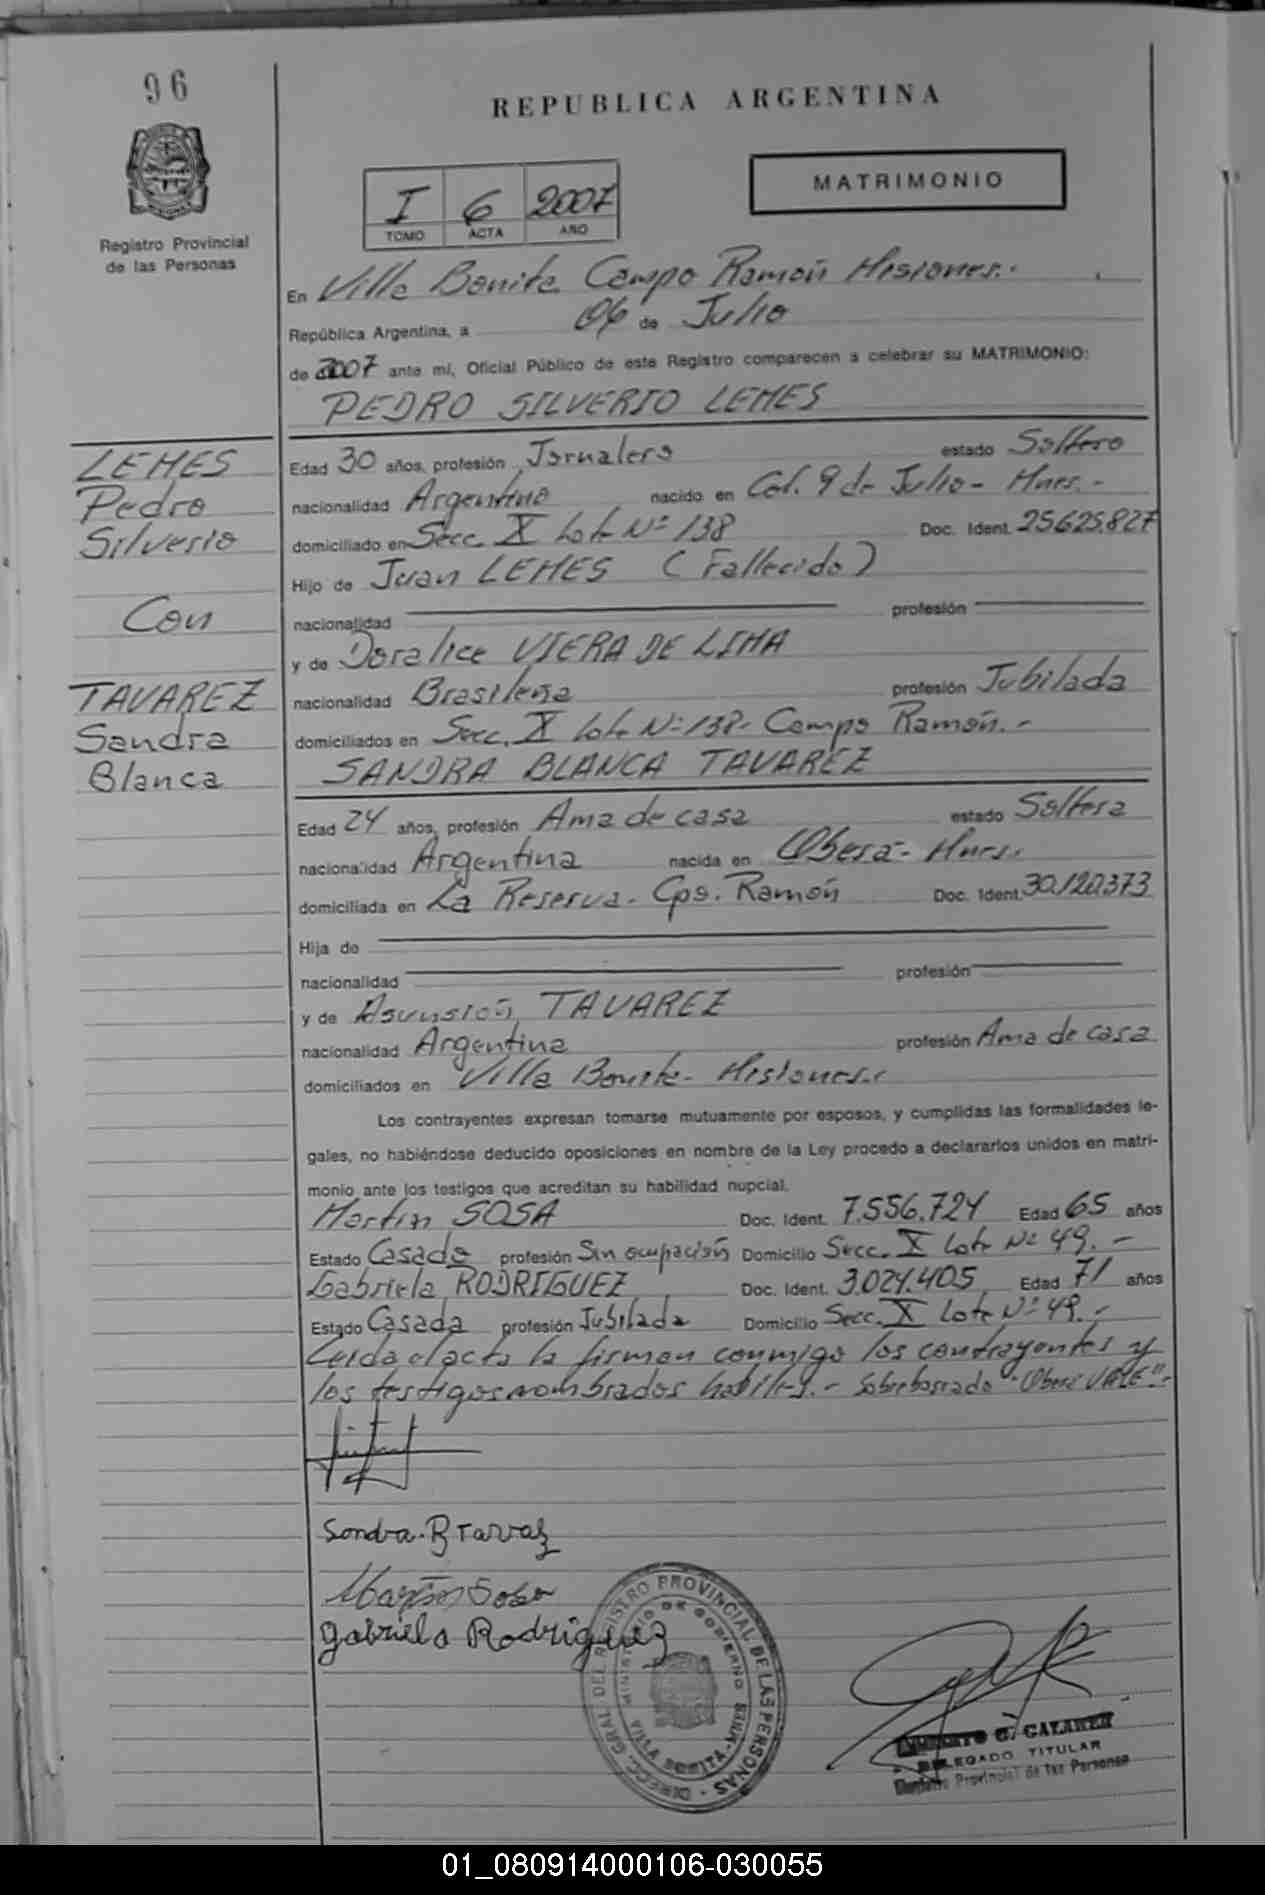 96
REPUBLICA ARGENTINA
MATRIMONIO
Registro Provincial
de las Personas
I 6 2007
TOMO ACTA AÑO
En Villa Bonita Campo Ramón Misiones.-
República Argentina, a 06 de Julio
de 2007 ante mí, Oficial Público de este Registro comparecen a celebrar su MATRIMONIO:
PEDRO SILVERIO LEMES
LEMES
Pedro
Silverio
Con
TAVAREZ
Sandra
Blanca
Edad 30 años, profesión Jornalero estado Soltero
nacionalidad Argentino nacido en Col. 9 de Julio - Mnes.-
domiciliado en Secc. X Lote Nº 138 Doc. Ident. 25.625.827
Hijo de Juan LEMES (Fallecido)
nacionalidad profesión
y de Doralice VIERA DE LIMA
nacionalidad Brasileña profesión Jubilada
domiciliados en Secc. X Lote Nº 138- Campo Ramón.-
SANDRA BLANCA TAVAREZ
Edad 24 años, profesión Ama de casa estado Soltera
nacionalidad Argentina nacida en Oberá- Mnes.
domiciliada en La Reserva- Cpo. Ramón Doc. Ident. 30.120.373
Hija de
nacionalidad profesión
y de Asunsión TAVAREZ
nacionalidad Argentina profesión Ama de casa
domiciliados en Villa Bonita- Misiones.-
Los contrayentes expresan tomarse mutuamente por esposos, y cumplidas las formalidades le-
gales, no habiéndose deducido oposiciones en nombre de la Ley procedo a declararlos unidos en matri-
monio ante los testigos que acreditan su habilidad nupcial.
Martín SOSA Doc. Ident. 7.556.724 Edad 65 años
Estado Casado profesión Sin ocupación Domicilio Secc. X Lote Nº 49.-
Gabriela RODRIGUEZ Doc. Ident. 3.024.405 Edad 71 años
Estado Casada profesión Jubilada Domicilio Secc. X Lote Nº 49.-
Leida el acta la firman conmigo los contrayentes y
los testigos nombrados habiles.- Sobreborrado "Oberá VALE".-
Sandra. B Tavarez
Martín Sosa
Gabriela Rodriguez
DIRECC. GRAL. DEL REGISTRO PROVINCIAL DE LAS PERSONAS
MINISTERIO DE GOBIERNO
VILLA BONITA - MNES
G.
DELEGADO TITULAR
Registro Provincial de las Personas
01_080914000106-030055